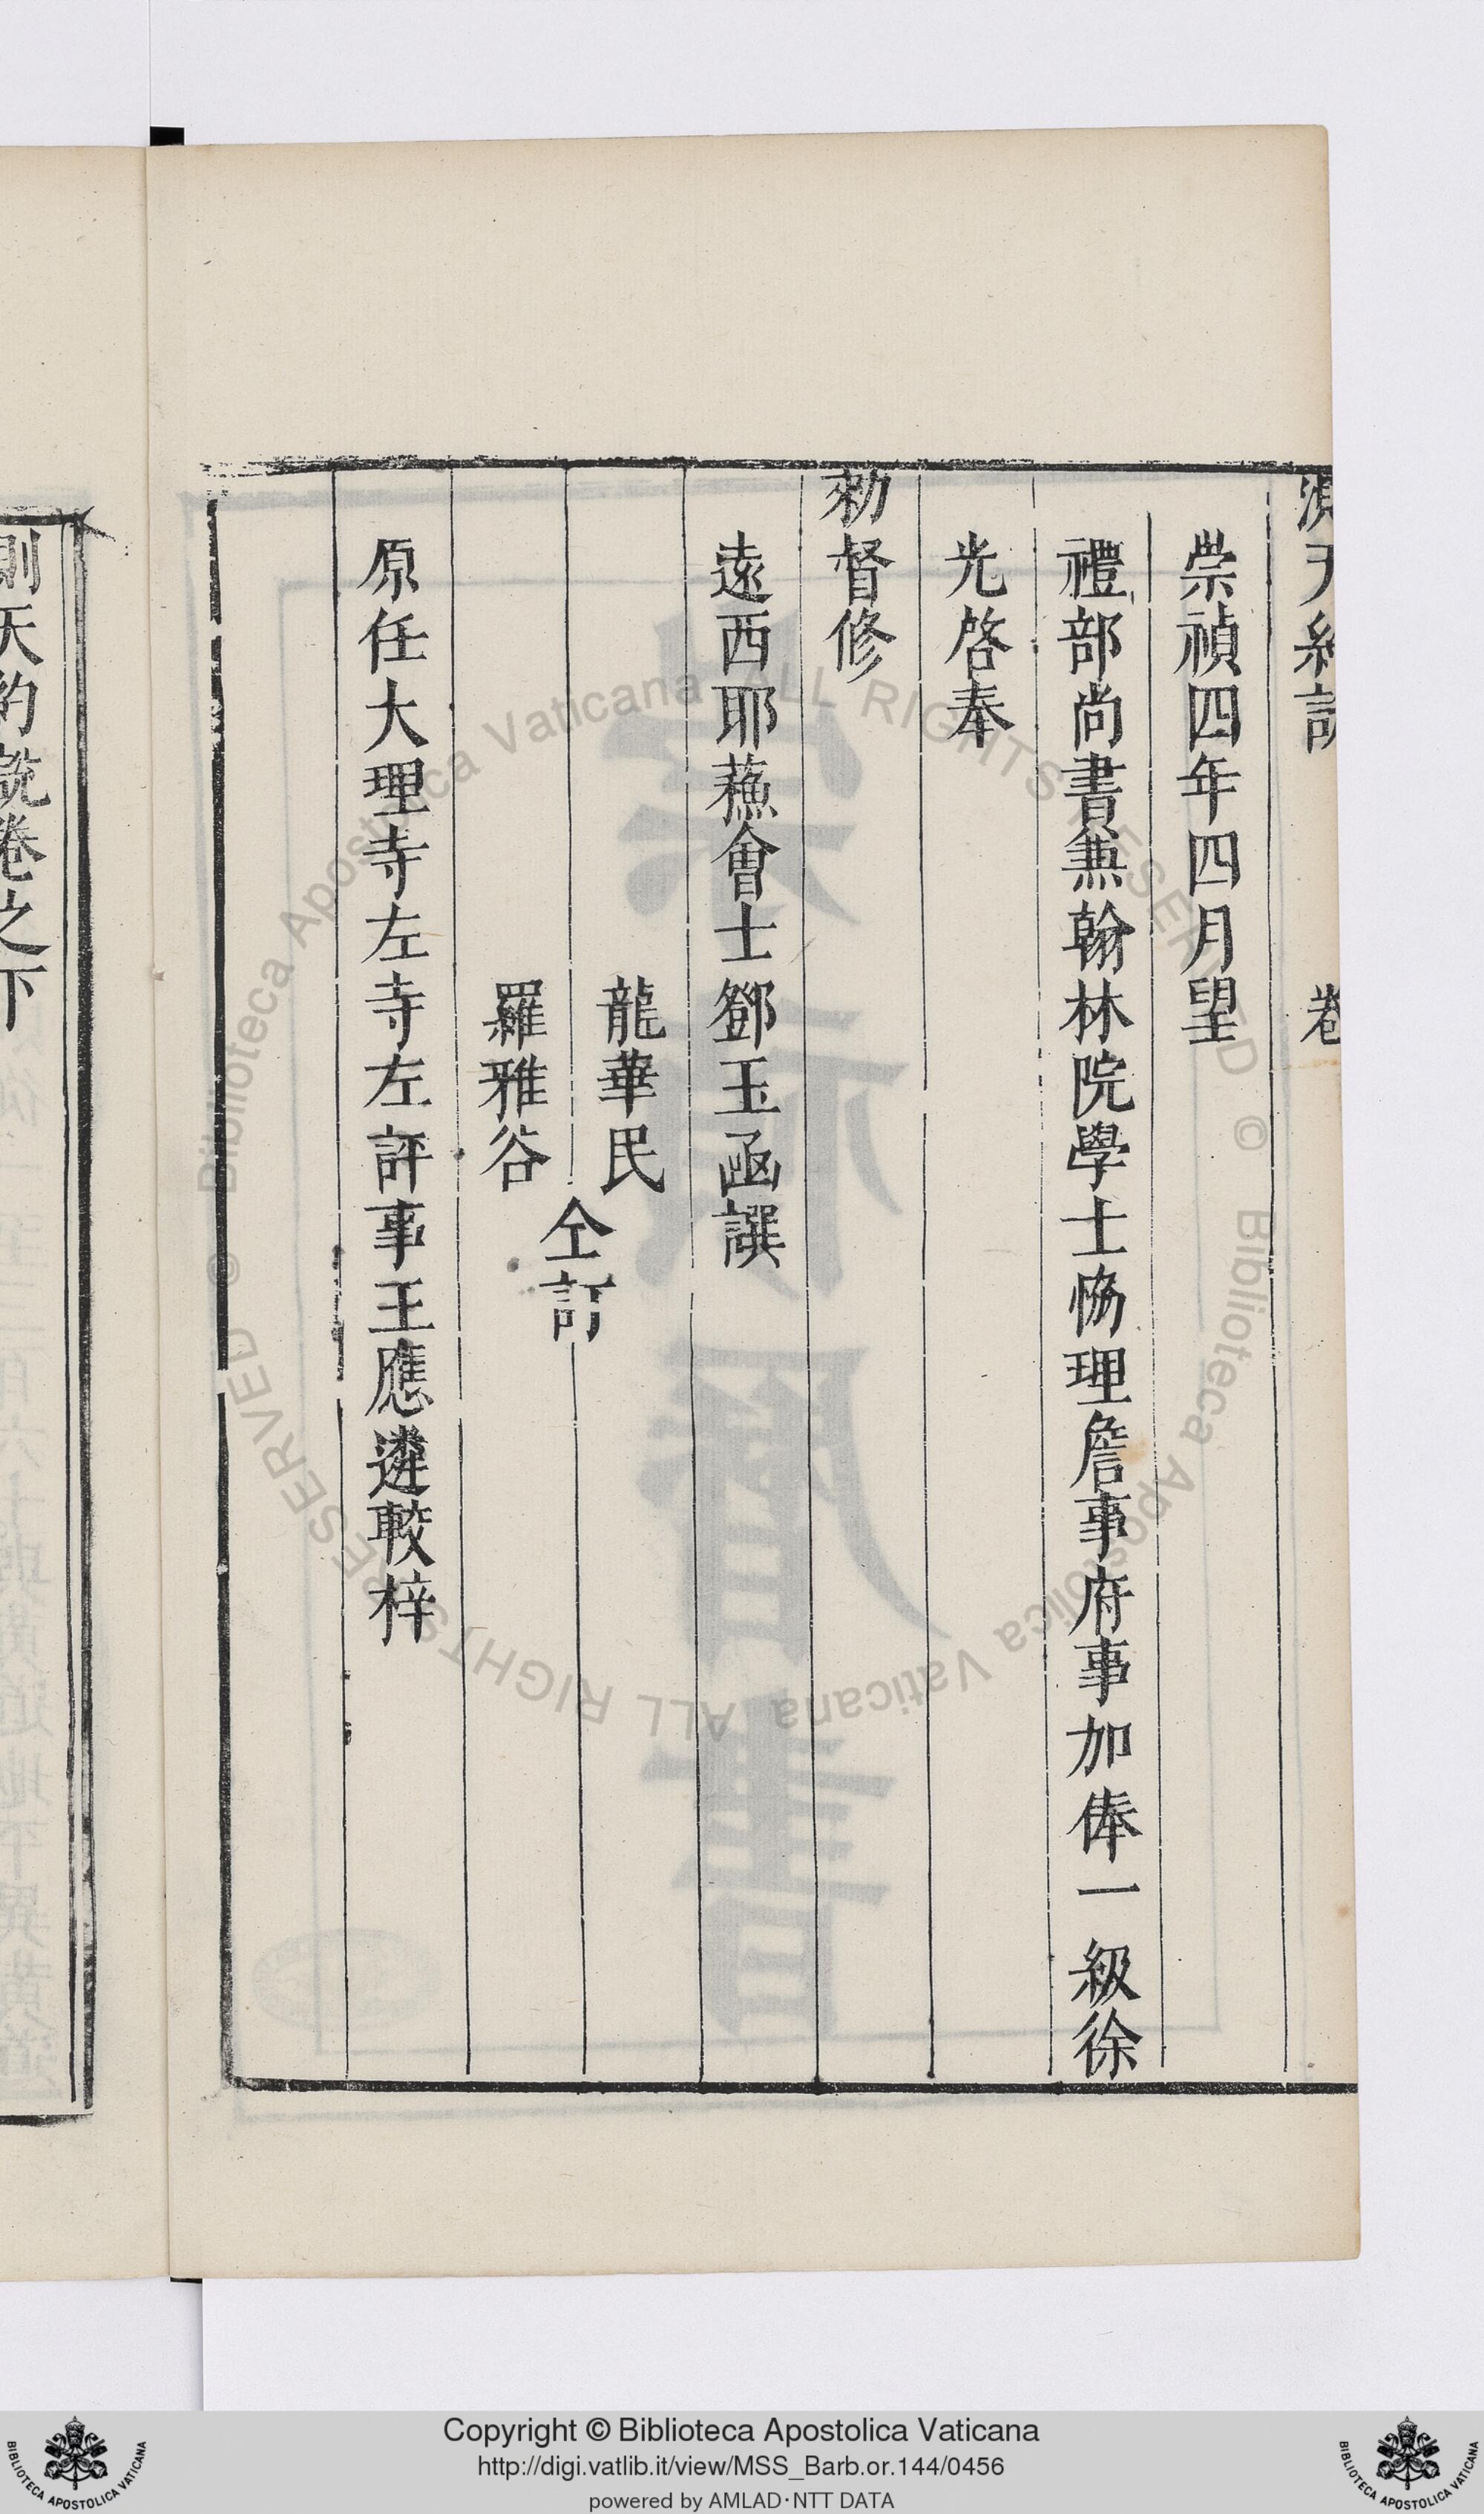 崇禎四年四月望
禮部尚書兼翰林院學士恊理詹事府事加俸一級徐
光啓奉
勑督修
遠西耶蘓會士鄧玉函譔
龍華民
羅雅谷
仝訂
原任大理寺左寺左評事王應遴較梓
測天約說卷之下
Copyright © Biblioteca Apostolica Vaticana
http://digi.vatlib.it/view/MSS_Barb.or.144/0456
powered by AMLAD·NTT DATA
BIBLIOTECA APOSTOLICA VATICANA
BIBLIOTECA APOSTOLICA VATICANA
© Biblioteca Apostolica Vaticana ALL RIGHTS RESERVED © Biblioteca Apostolica Vaticana ALL RIGHTS RESERVED